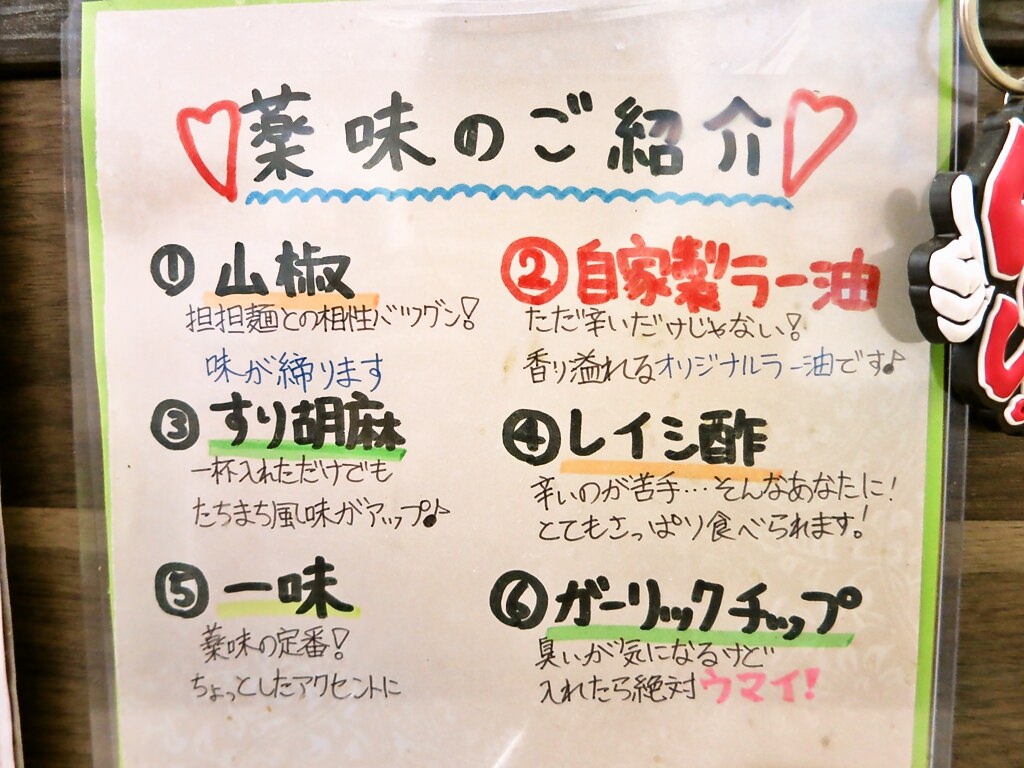 薬味のご紹介
① 山椒
担担麺との相性バツグン!
味が締ります
② 自家製ラー油
ただ辛いだけじゃない!
香り溢れるオリジナルラー油です♪
③ すり胡麻
一杯入れただけでも
たちまち風味がアップ♪
④ レイシ酢
辛いのが苦手…そんなあなたに!
とてもさっぱり食べられます!
⑤ 一味
薬味の定番!
ちょっとしたアクセントに
⑥ ガーリックチップ
臭いが気になるけど
入れたら絶対ウマイ!